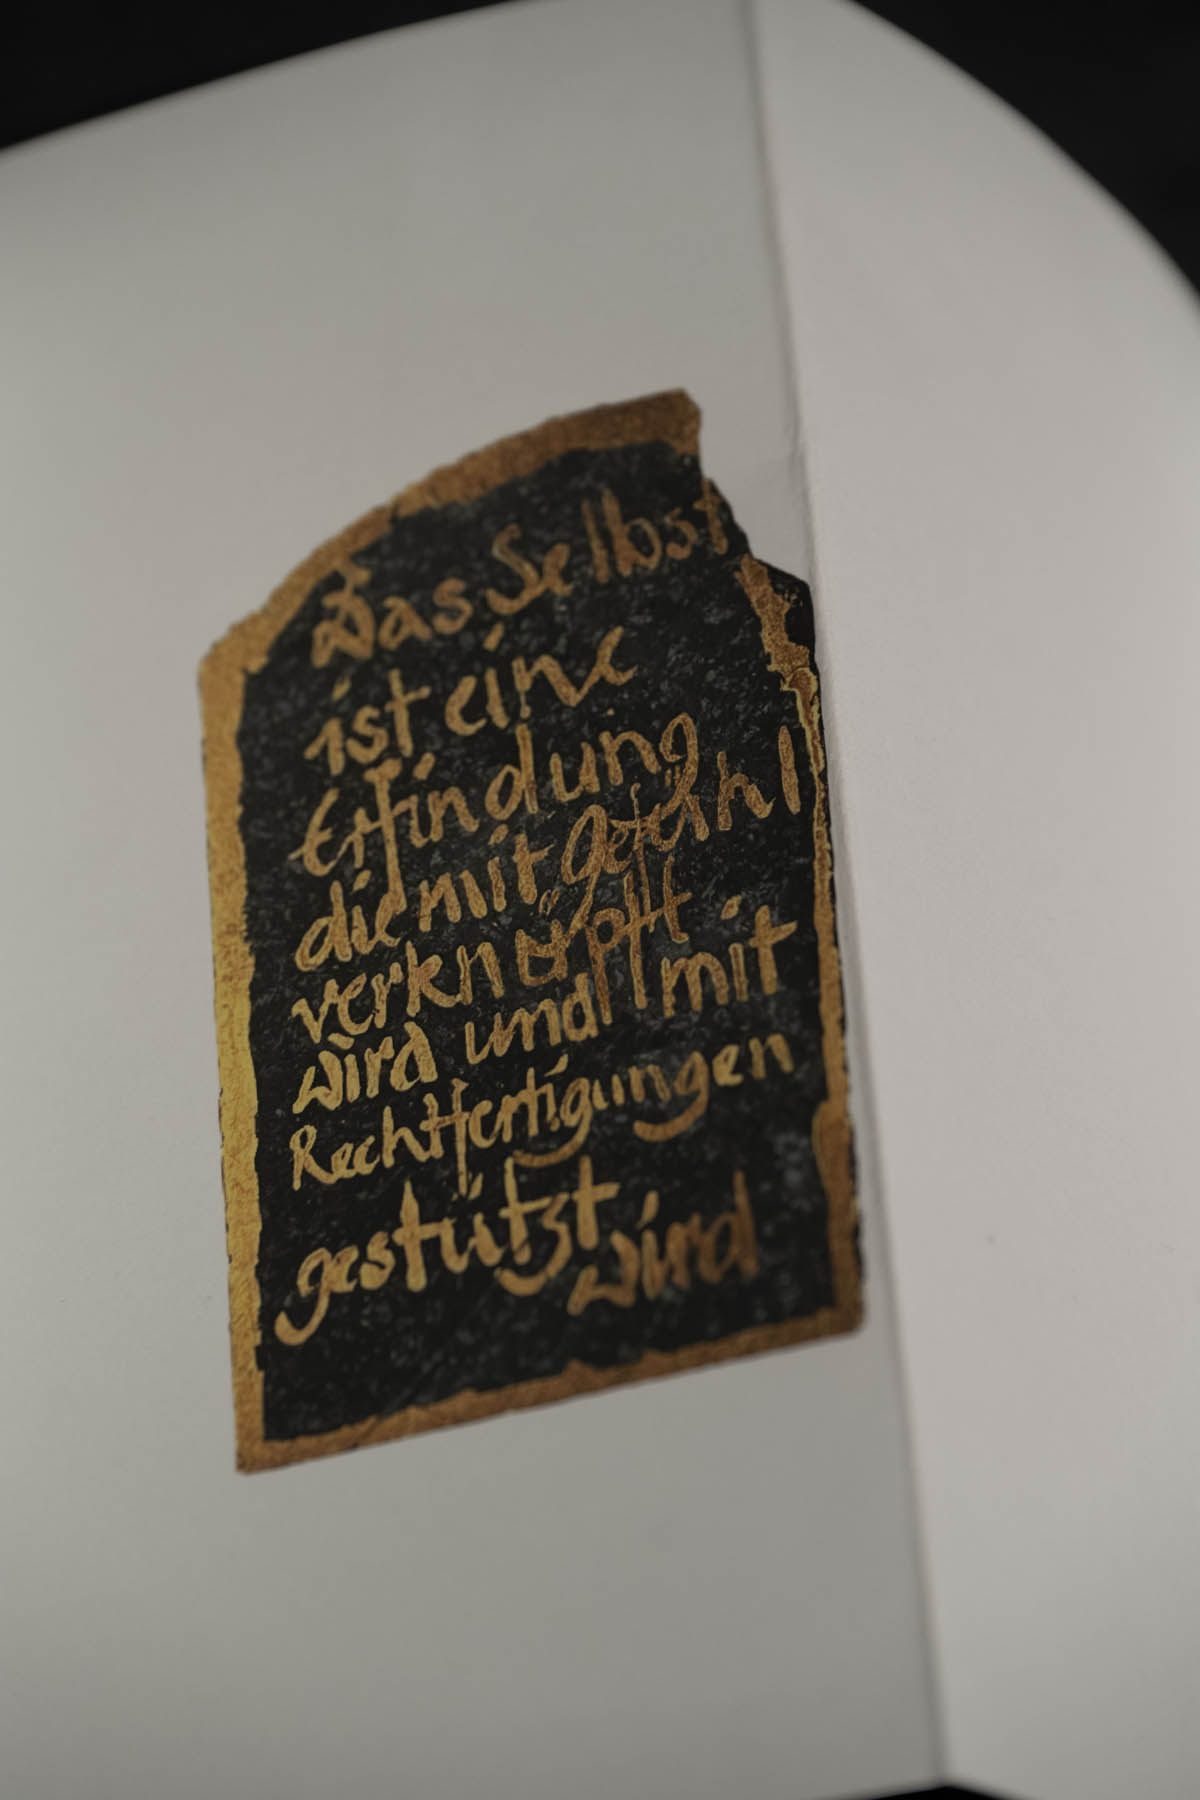 Das Selbst
ist eine
Erfindung
die mit Gefühl
verknüpft
wird und mit
Rechtfertigungen
gestützt
wird